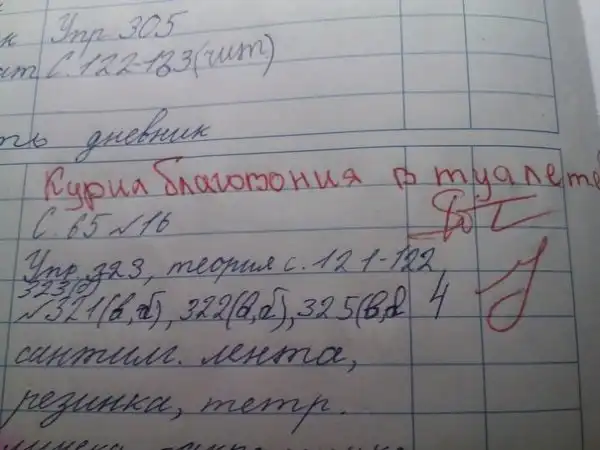 Упр 305
С. 122-123 (чит)
дневник
Курил благовония в туалете
С. 65 №16
Упр 323, теория с. 121-122
323(б)
№321(в,б), 322(в,б), 325(в,
4
сантим. лента,
резинка, тетр.